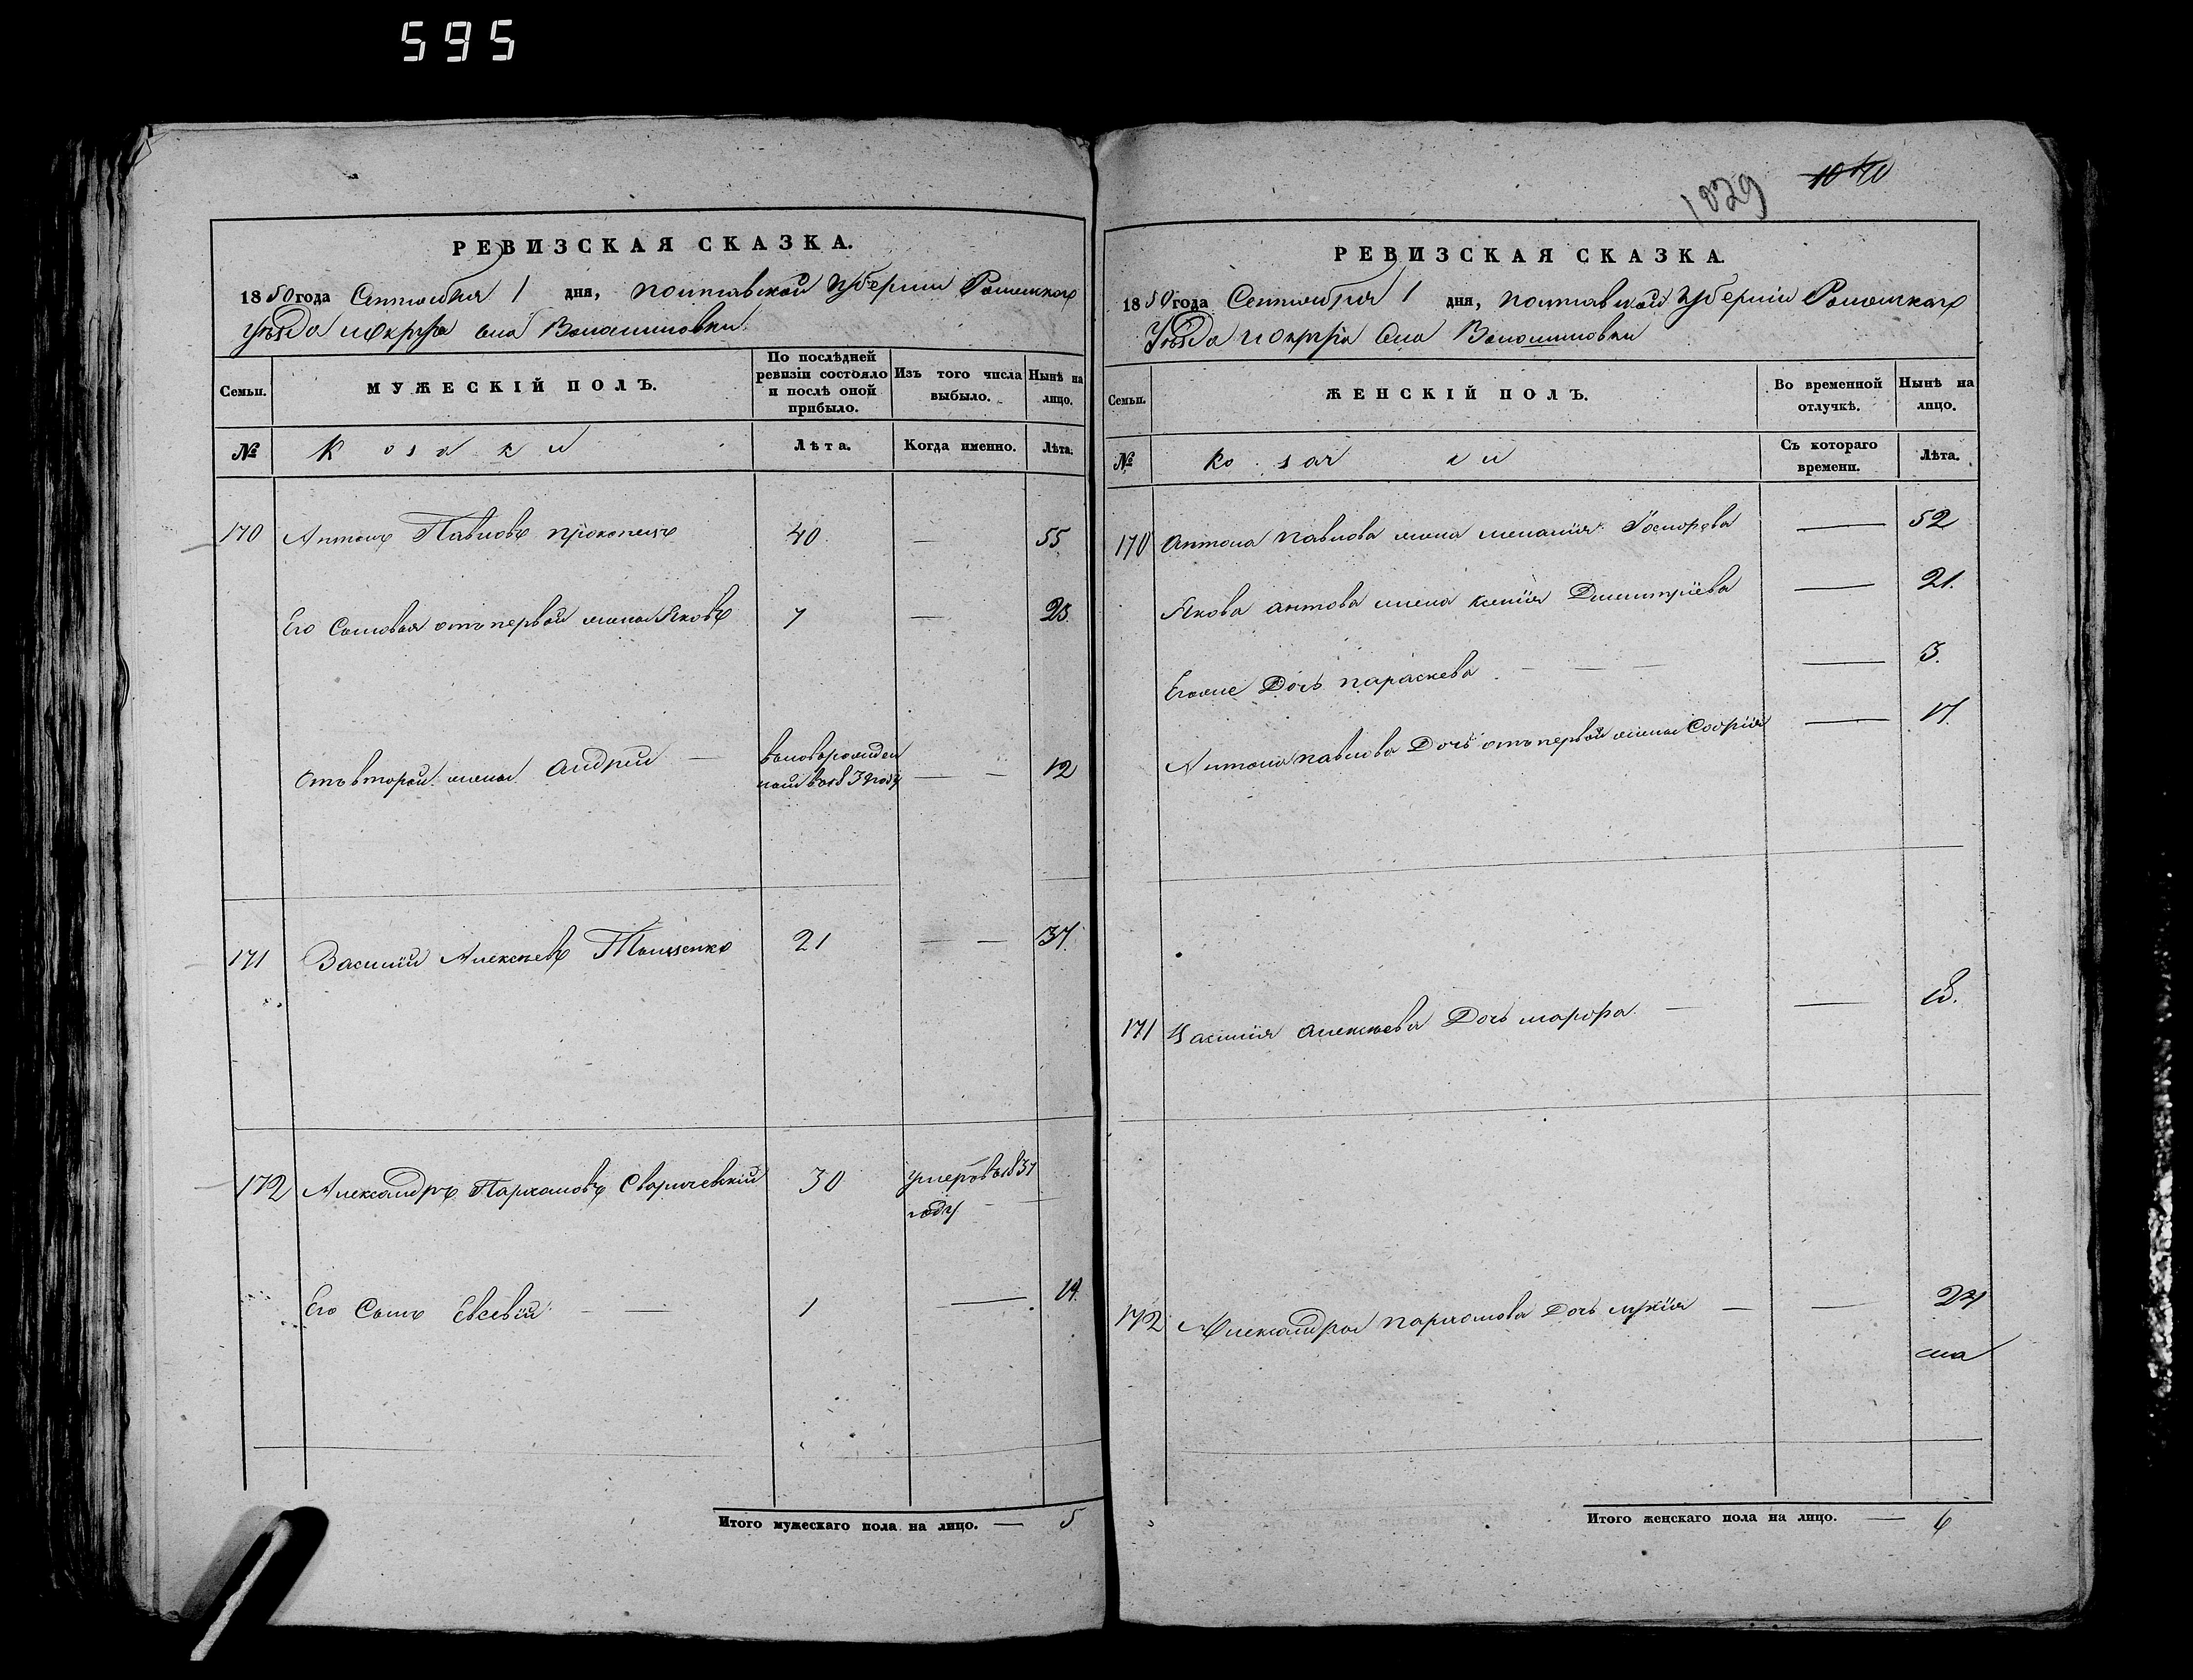 595
1029
1040
РЕВИЗСКАЯ СКАЗКА.
1850 года Сентября 1 дня, Полтавской Губернии Роменского
Уѣзда и Округа Села Волошиновки
Семьи.
МУЖЕСКІЙ ПОЛЪ.
По послѣдней ревизіи состояло и послѣ оной прибыло.
Изъ того числа выбыло.
Нынѣ на лицо.
№
Козаки
Лѣта.
Когда именно.
Лѣта.
170 Антонъ Павловъ Прокопецъ 40 — 55
Его Сыновья отъ первой жены Яковъ 7 — 23
Отъ второй жены Андрей — вновьрожден
ный в 1837 году — — 12
171 Василий Алексѣевъ 21 — — 37.
172 Александръ Пархомовъ Сваричевскій 30 умеръ въ 1837
году —
Его Сынъ Евсевій — — 1 — 17.
Итого мужескаго пола на лицо. — 5
РЕВИЗСКАЯ СКАЗКА.
1850 года Сентября 1 дня, Полтавской Губерніи Роменского
Уѣзда и Округа Села Волошиновки
Семьи.
ЖЕНСКІЙ ПОЛЪ.
Во временной отлучкѣ.
Нынѣ на лицо.
№
Козачки
Съ котораго времени.
Лѣта.
170 Антона Павлова жена Меланія — 52
Якова Антонова жена Ксенія Дмитріева — 21.
Егоже Дочь Параскева — — — — 3.
Антона Павлова Дочь отъ первой жены Софія — 17.
171 Василія Алексѣева Дочь Марфа — — 18.
172 Александра Пархомова Дочь — — 24
Итого женскаго пола на лицо. — 6